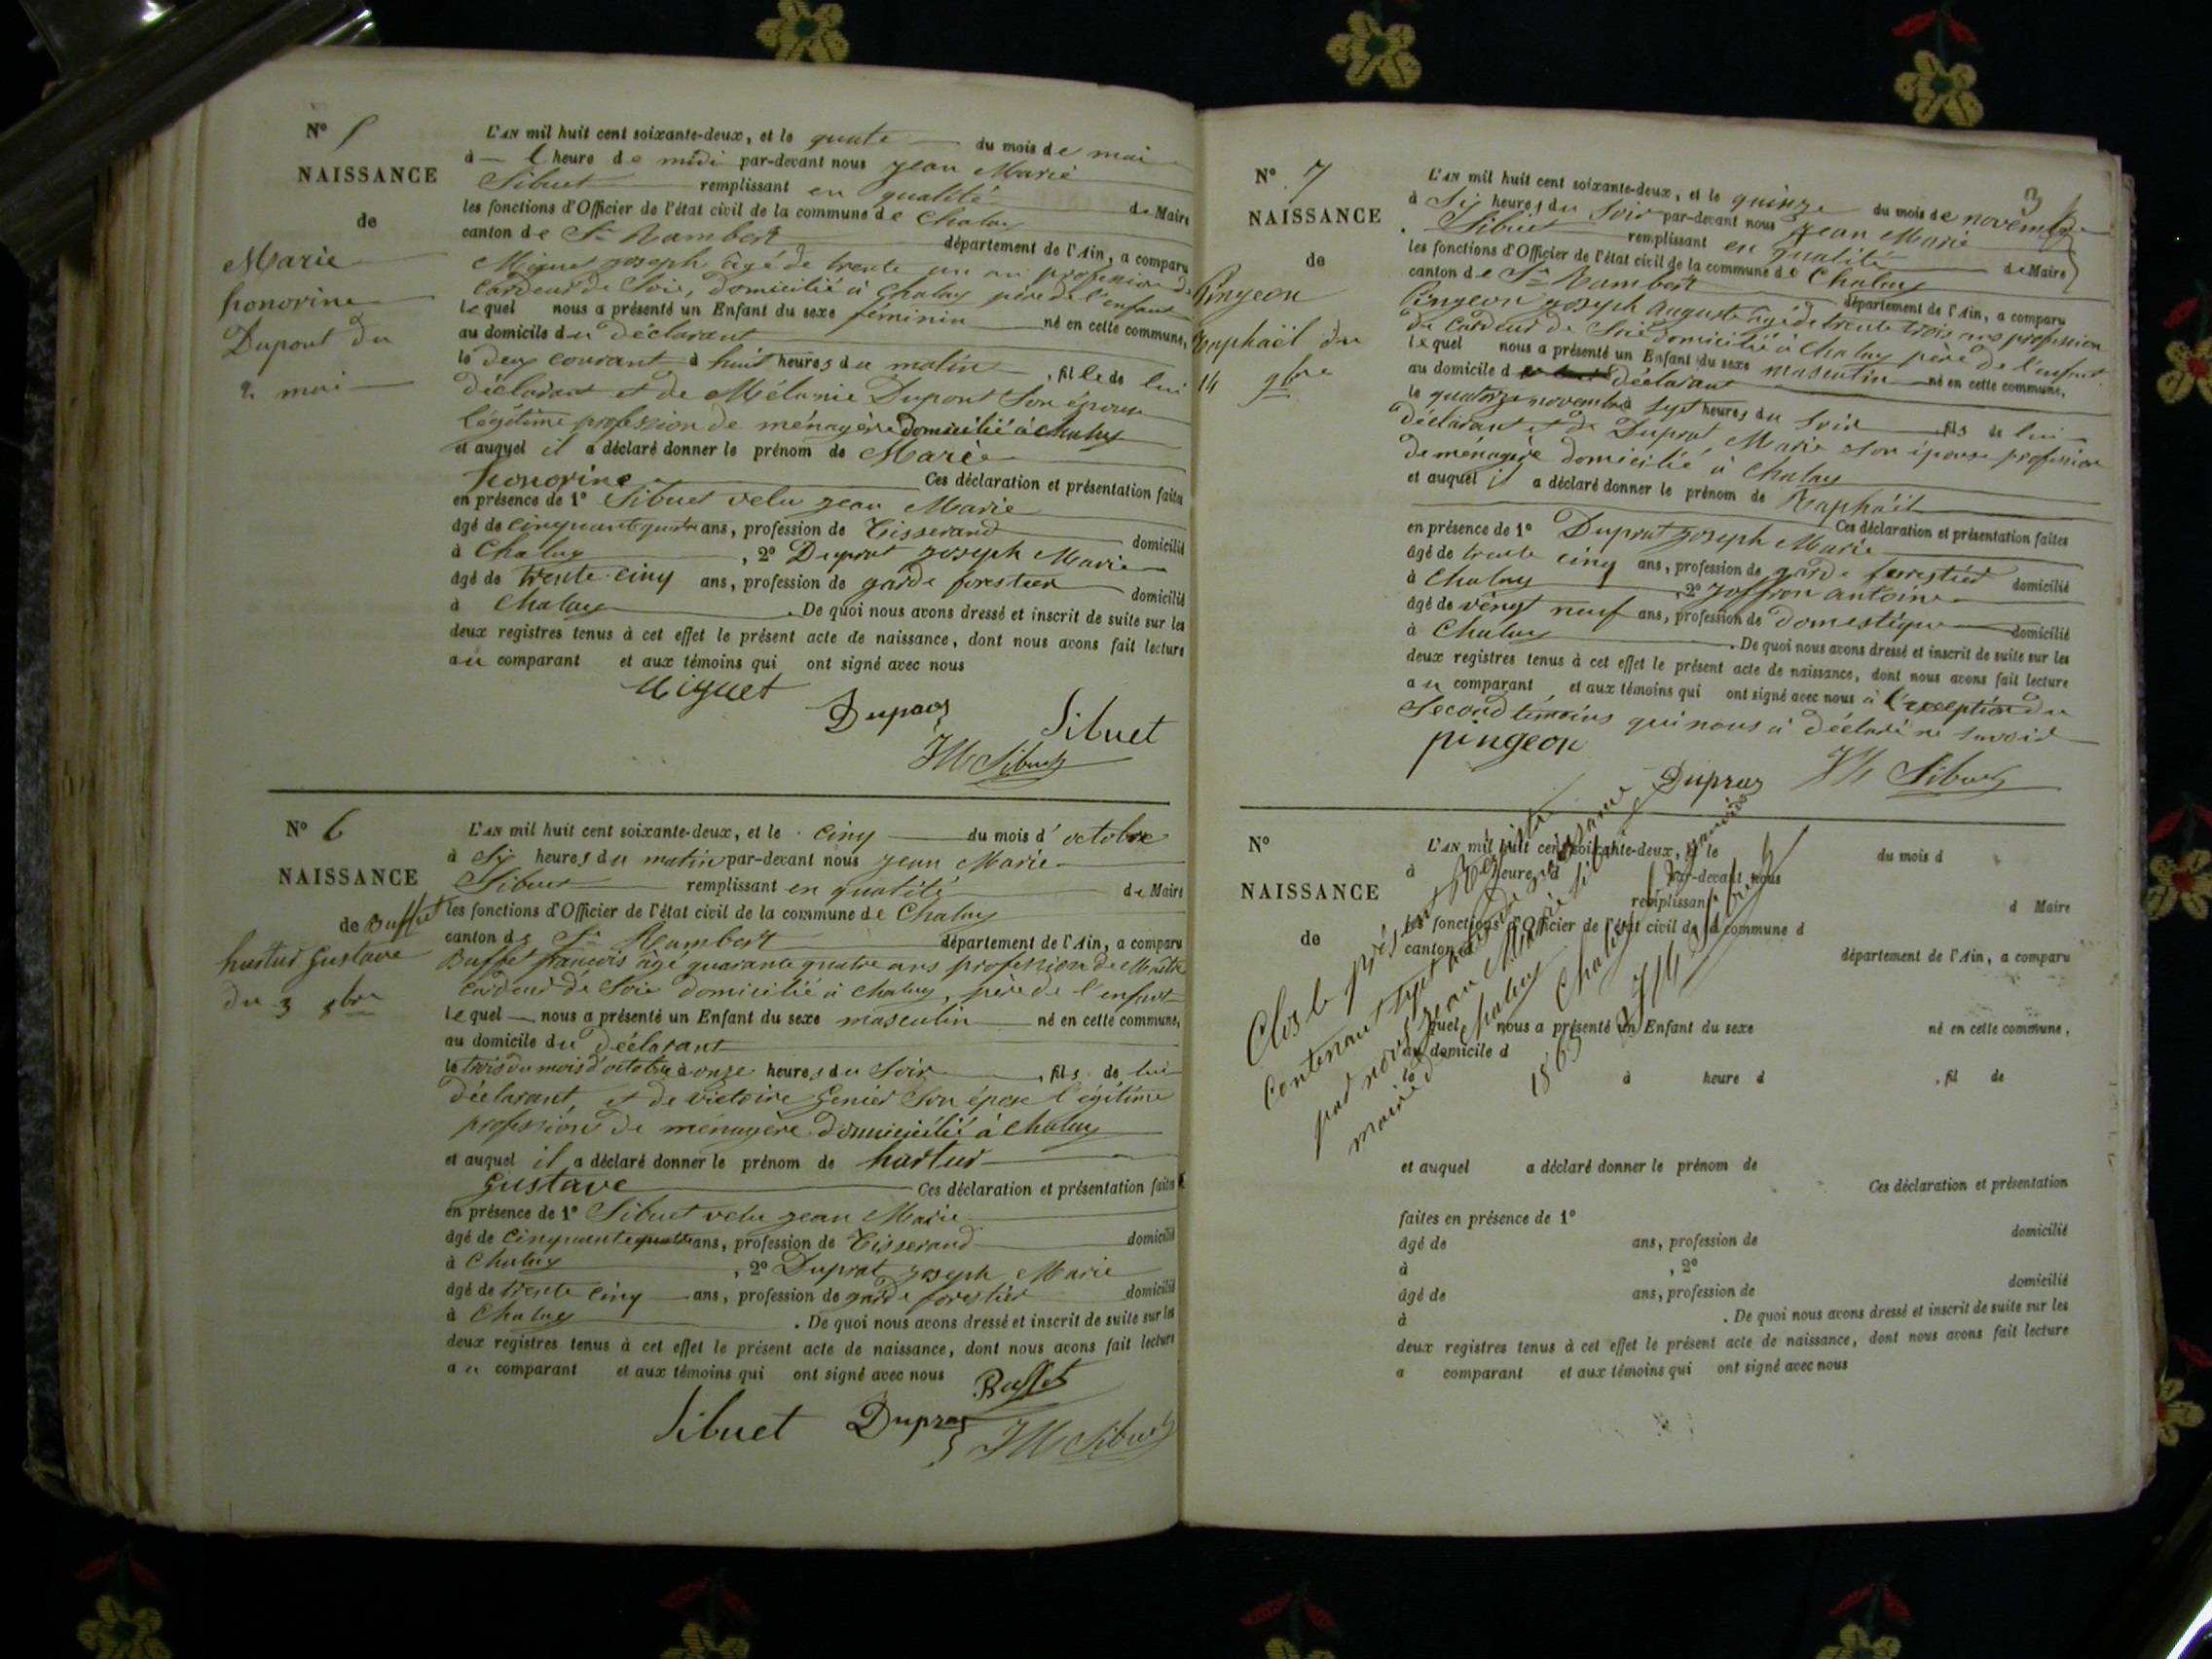 N° 5
NAISSANCE
de
Marie
honorine
Dupont du
2 mai
L'AN mil huit cent soixante-deux, et le quate du mois de mai
à l heure de midi par-devant nous jean Marie
Sibuet remplissant en qualité de Maire
les fonctions d'Officier de l'état civil de la commune de Chaley
canton de St Rambert département de l'Ain, a comparu
Miguet joseph âgé de trente un an profession de
Cardeur de Soie, domicilié à Chaley père de l'enfant
lequel nous a présenté un Enfant du sexe féminin né en cette commune,
au domicile du déclarant
le deux courant à huit heures du matin, fille de lui
déclarant et de Mélanie Dupont Son épouse
légitime profession de ménagère domicilié à Chaley
et auquel il a déclaré donner le prénom de Marie
honorine Ces déclaration et présentation faites
en présence de 1° Sibuet velu jean Marie
âgé de cinquante quatre ans, profession de Tisserand domicilié
à Chaley, 2° Duprat joseph Marie
âgé de trente cinq ans, profession de garde forestier domicilié
à Chaley. De quoi nous avons dressé et inscrit de suite sur les
deux registres tenus à cet effet le présent acte de naissance, dont nous avons fait lecture
au comparant et aux témoins qui ont signé avec nous
Miguet
Dupraz Sibuet
JM Sibuet
N° 6
NAISSANCE
de Buffet
hartur Gustave
du 3 8bre
L'AN mil huit cent soixante-deux, et le cinq du mois d'octobre
à Six heures du matin par-devant nous jean Marie
Sibuet remplissant en qualité de Maire
les fonctions d'Officier de l'état civil de la commune de Chaley
canton de St Rambert département de l'Ain, a comparu
Buffet francois âgé quarante quatre ans profession de Maître
Cardeur de Soie domicilié à Chaley, père de l'enfant
lequel nous a présenté un Enfant du sexe masculin né en cette commune,
au domicile du déclarant
le trois du mois d'octobre à onze heures du Soir, fils de lui
déclarant, et de victoire Genier Son épose légitime
profession de ménagère domicicilié à Chaley
et auquel il a déclaré donner le prénom de hartur
Gustave Ces déclaration et présentation faites
en présence de 1° Sibuet velu jean Marie
âgé de cinquante quatre ans, profession de Tisserand domicilié
à Chaley, 2° Duprat joseph Marie
âgé de trente cinq ans, profession de garde forestier domicilié
à Chaley. De quoi nous avons dressé et inscrit de suite sur les
deux registres tenus à cet effet le présent acte de naissance, dont nous avons fait lecture
au comparant et aux témoins qui ont signé avec nous Buffet
Sibuet Dupraz JM Sibuet
3
N° 7
NAISSANCE
de
Pingeon
Raphaël du
14 9bre
L'AN mil huit cent soixante-deux, et le quinze du mois de novembre
à Six heures du Soir par-devant nous jean Marie
Sibuet remplissant en qualité de Maire
les fonctions d'Officier de l'état civil de la commune de Chaley
canton de St Rambert département de l'Ain, a comparu
Pingeon joseph auguste âgé de trente trois ans profession
de Cardeur de Soie domicilié à Chaley père de l'enfant
lequel nous a présenté un Enfant du sexe masculin né en cette commune,
au domicile d déclarant
le quatorze novembre à Sept heures du Soir fils de lui
déclarant et de Duprat, Marie son épouse profession
de ménagère domicilié à Chaley
et auquel il a déclaré donner le prénom de Raphaël
Ces déclaration et présentation faites
en présence de 1° Duprat joseph Marie
âgé de trente cinq ans, profession de garde forrestier domicilié
à Chaley, 2° joffron antoine
âgé de vingt neuf ans, profession de domestique domicilié
à Chaley. De quoi nous avons dressé et inscrit de suite sur les
deux registres tenus à cet effet le présent acte de naissance, dont nous avons fait lecture
au comparant et aux témoins qui ont signé avec nous à l'exception du
Second témoins qui nous a déclaré ne Savoir
pingeon
Dupraz JM Sibuet
N°
NAISSANCE
de
L'AN mil huit cent soixante-deux, et le du mois d
à heure d par-devant nous
remplissant d Maire
les fonctions d'Officier de l'état civil de la commune d
canton d département de l'Ain, a comparu
quel nous a présenté un Enfant du sexe né en cette commune,
au domicile d
le à heure d, fil de
et auquel a déclaré donner le prénom de
Ces déclaration et présentation
faites en présence de 1°
âgé de ans, profession de domicilié
à, 2°
âgé de ans, profession de domicilié
à. De quoi nous avons dressé et inscrit de suite sur les
deux registres tenus à cet effet le présent acte de naissance, dont nous avons fait lecture
a comparant et aux témoins qui ont signé avec nous
Clos le présent Registre
Contenant Sept actes de naissance
par nous jean Marie Sibuet
maire de Chaley Chaley janvier
1863 JM Sibuet